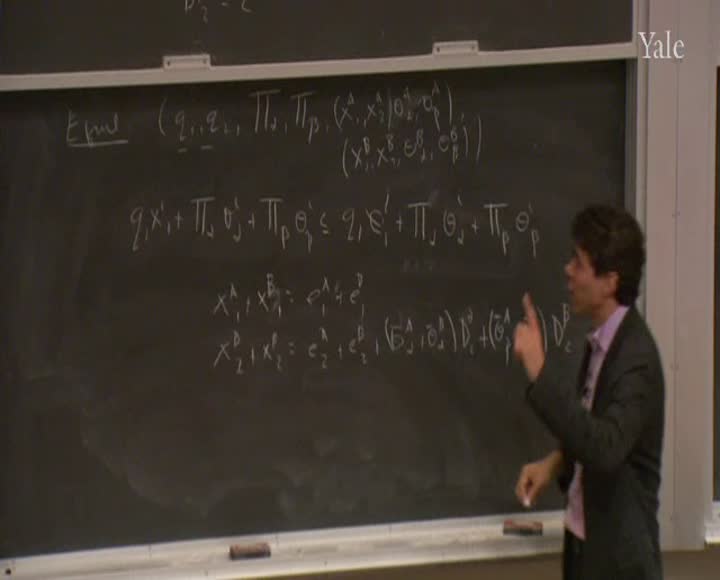 D_2 = 2
Yale
Equil (q_1, q_2, Π_α, Π_β, (x_1^A, x_2^A, θ_α^A, θ_β^A),
(x_1^B, x_2^B, θ_α^B, θ_β^B))
q_1 x_1^i + Π_α θ_α^i + Π_β θ_β^i ≤ q_1 e_1^i + Π_α θ̄_α^i + Π_β θ̄_β^i
x_1^A + x_1^B = e_1^A + e_1^B
x_2^A + x_2^B = e_2^A + e_2^B + (θ̄_α^A + θ̄_α^B) D_2^α + (θ̄_β^A ) D_2^β